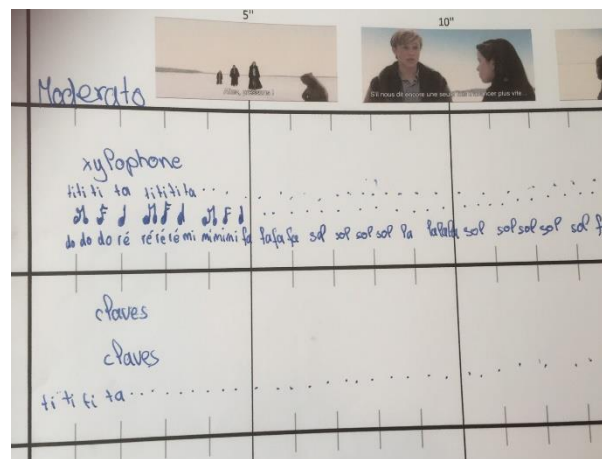 5" 10"
Allez, maintenant !
S'il nous dit encore une seule fois d'avancer plus vite...
Moderato
xylophone
titi ti ta tititita . . .
do do do ré rérérémi mimimi fa fafafa sol sol sol sol la lalala sol sol sol sol sol f
claves
claves
ti ti ti ta . . . . . . . . .